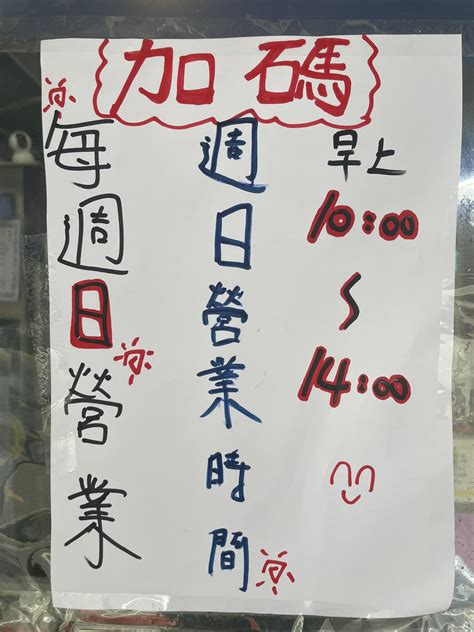 加碼
每週日營業
週日營業時間
早上
10:00
~
14:00